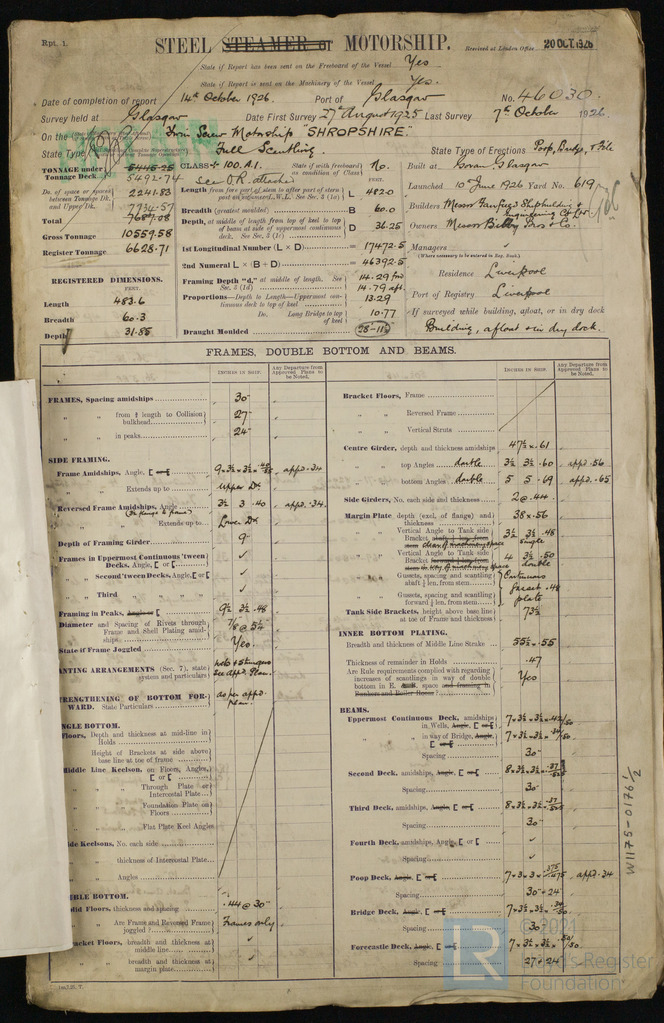 Rpt. 1.
STEEL STEAMER or MOTORSHIP.
Revised at London Office 20 OCT. 1926
State if Report has been sent on the Freeboard of the Vessel Yes
State if Report is sent on the Machinery of the Vessel Yes.
Date of completion of report 14th October 1926. Port of Glasgow No. 46030.
Survey held at Glasgow Date First Survey 27 August 1925 Last Survey 7th October 1926.
On the Twin Screw Motorship "SHROPSHIRE."
State Type Full Scantling. State Type of Erections Poop, Bridge, & F'cle
TONNAGE under Tonnage Deck 5445.25 5492.74
CLASS + 100.A.1. State if with freeboard as condition of Class No.
Built at Govan Glasgow
Do. of space or spaces between Tonnage Dk. and Upper Dk. 2241.83
Launched 10th June 1926 Yard No. 619
Total 7734.57
Builders Messrs Fairfield Shipbuilding & Engineering Co Ltd
Gross Tonnage 10559.58
Owners Messrs Bibby Bros & Co.
Register Tonnage 6628.71
Length from fore part of stem to after part of stern post on summer L.W.L. See Sec. 3 (1a) L 482.0
Breadth (greatest moulded) B 60.0
Depth, at middle of length from top of keel to top of beam at side of uppermost continuous deck. See Sec. 3 (1c) D 36.25
1st Longitudinal Number (L × D) = 17472.5
2nd Numeral L × (B + D) = 46392.5
Framing Depth "d," at middle of length. See Sec. 3 (1d) 14.29 for'd 14.79 aft.
Proportions—Depth to Length—Uppermost continuous deck to top of keel 13.29
Do. Long Bridge to top of keel 10.77
Draught Moulded 28-11
Managers ✓
(Where necessary to be entered in Reg. Book.)
Residence Liverpool
Port of Registry Liverpool
If surveyed while building, afloat, or in dry dock
Building, afloat & in dry dock.
REGISTERED DIMENSIONS.
FEET.
Length 483.6
Breadth 60.3
Depth 31.85
FRAMES, DOUBLE BOTTOM AND BEAMS.
INCHES IN SHIP.
Any Departure from Approved Plans to be Noted.
FRAMES, Spacing amidships 30"
" " from ⅕ length to Collision bulkhead 27"
" " in peaks 24"
SIDE FRAMING.
Frame Amidships, Angle, [ or
" " Extends up to Upper Dk
Reversed Frame Amidships, Angle 3½ 3 .40 appd .34
" " Extends up to Lower Dk
Depth of Framing Girder 9"
Frames in Uppermost Continuous 'tween Decks, Angle, [ or ✓
" Second 'tween Decks, Angle, [ or ✓
" Third " " ✓
Framing in Peaks, Angle or [ 9½ 3½ .48
Diameter and Spacing of Rivets through Frame and Shell Plating amidships 7/8 @ 5¼
State if Frame Joggled Yes.
ANTING ARRANGEMENTS (Sec. 7), state system and particulars Webs & Stringers See appd Plan.
RENGTHENING OF BOTTOM FORWARD. State Particulars as per appd. plan.
NGLE BOTTOM.
Floors, Depth and thickness at mid-line in Holds
Height of Brackets at side above base line at toe of frame
Middle Line Keelson, on Floors, Angles, [ or
" " Through Plate or Intercostal Plate
" " Foundation Plate on Floors
" " Flat Plate Keel Angles
de Keelsons, No. each side
" thickness of Intercostal Plate
" Angles
UBLE BOTTOM.
lid Floors, thickness and spacing .44 @ 30"
" Are Frame and Reversed Frame joggled? Frames only
racket Floors, breadth and thickness at middle line ✓
" breadth and thickness at margin plate ✓
Bracket Floors, Frame
" " Reversed Frame
" " Vertical Struts
Centre Girder, depth and thickness amidships 47½ × .61
" " top Angles double 3½ 3½ .60 appd .56
" " bottom Angles double 5 5 .69 appd .65
Side Girders, No. each side and thickness 2 @ .44
Margin Plate, depth (excl. of flange) and thickness 38 × .56
" " Vertical Angle to Tank side Bracket 3½ 3½ .48 single
" " Vertical Angle to Tank side Bracket 4 3½ .50 double
" " Gussets, spacing and scantling abaft ¼ len. from stem
" " Gussets, spacing and scantling forward ¼ len. from stem
Continuous gusset .48 plate
Tank Side Brackets, height above base line at toe of Frame and thickness 73½
INNER BOTTOM PLATING.
Breadth and thickness of Middle Line Strake 55½ × .55
Thickness of remainder in Holds .47
Are Rule requirements complied with regarding increases of scantlings in way of double bottom in E. space and framing in Bunkers and Boiler Room? Yes
BEAMS.
Uppermost Continuous Deck, amidships in Wells, Angle, [ or
" " in way of Bridge, Angle, [ or
Spacing 30"
Second Deck, amidships, Angle, [ or
Spacing 30"
Third Deck, amidships, Angle, [ or
Spacing 30"
Fourth Deck, amidships, Angle, [ or ✓
Spacing ✓
Poop Deck, Angle, [ or appd .34
Spacing 30" & 24
Bridge Deck, Angle, [ or
Spacing 30"
Forecastle Deck, Angle, [ or
Spacing 27 & 24
W1175-0176 1/2
© 2021
Lloyd's Register
Foundation
LR